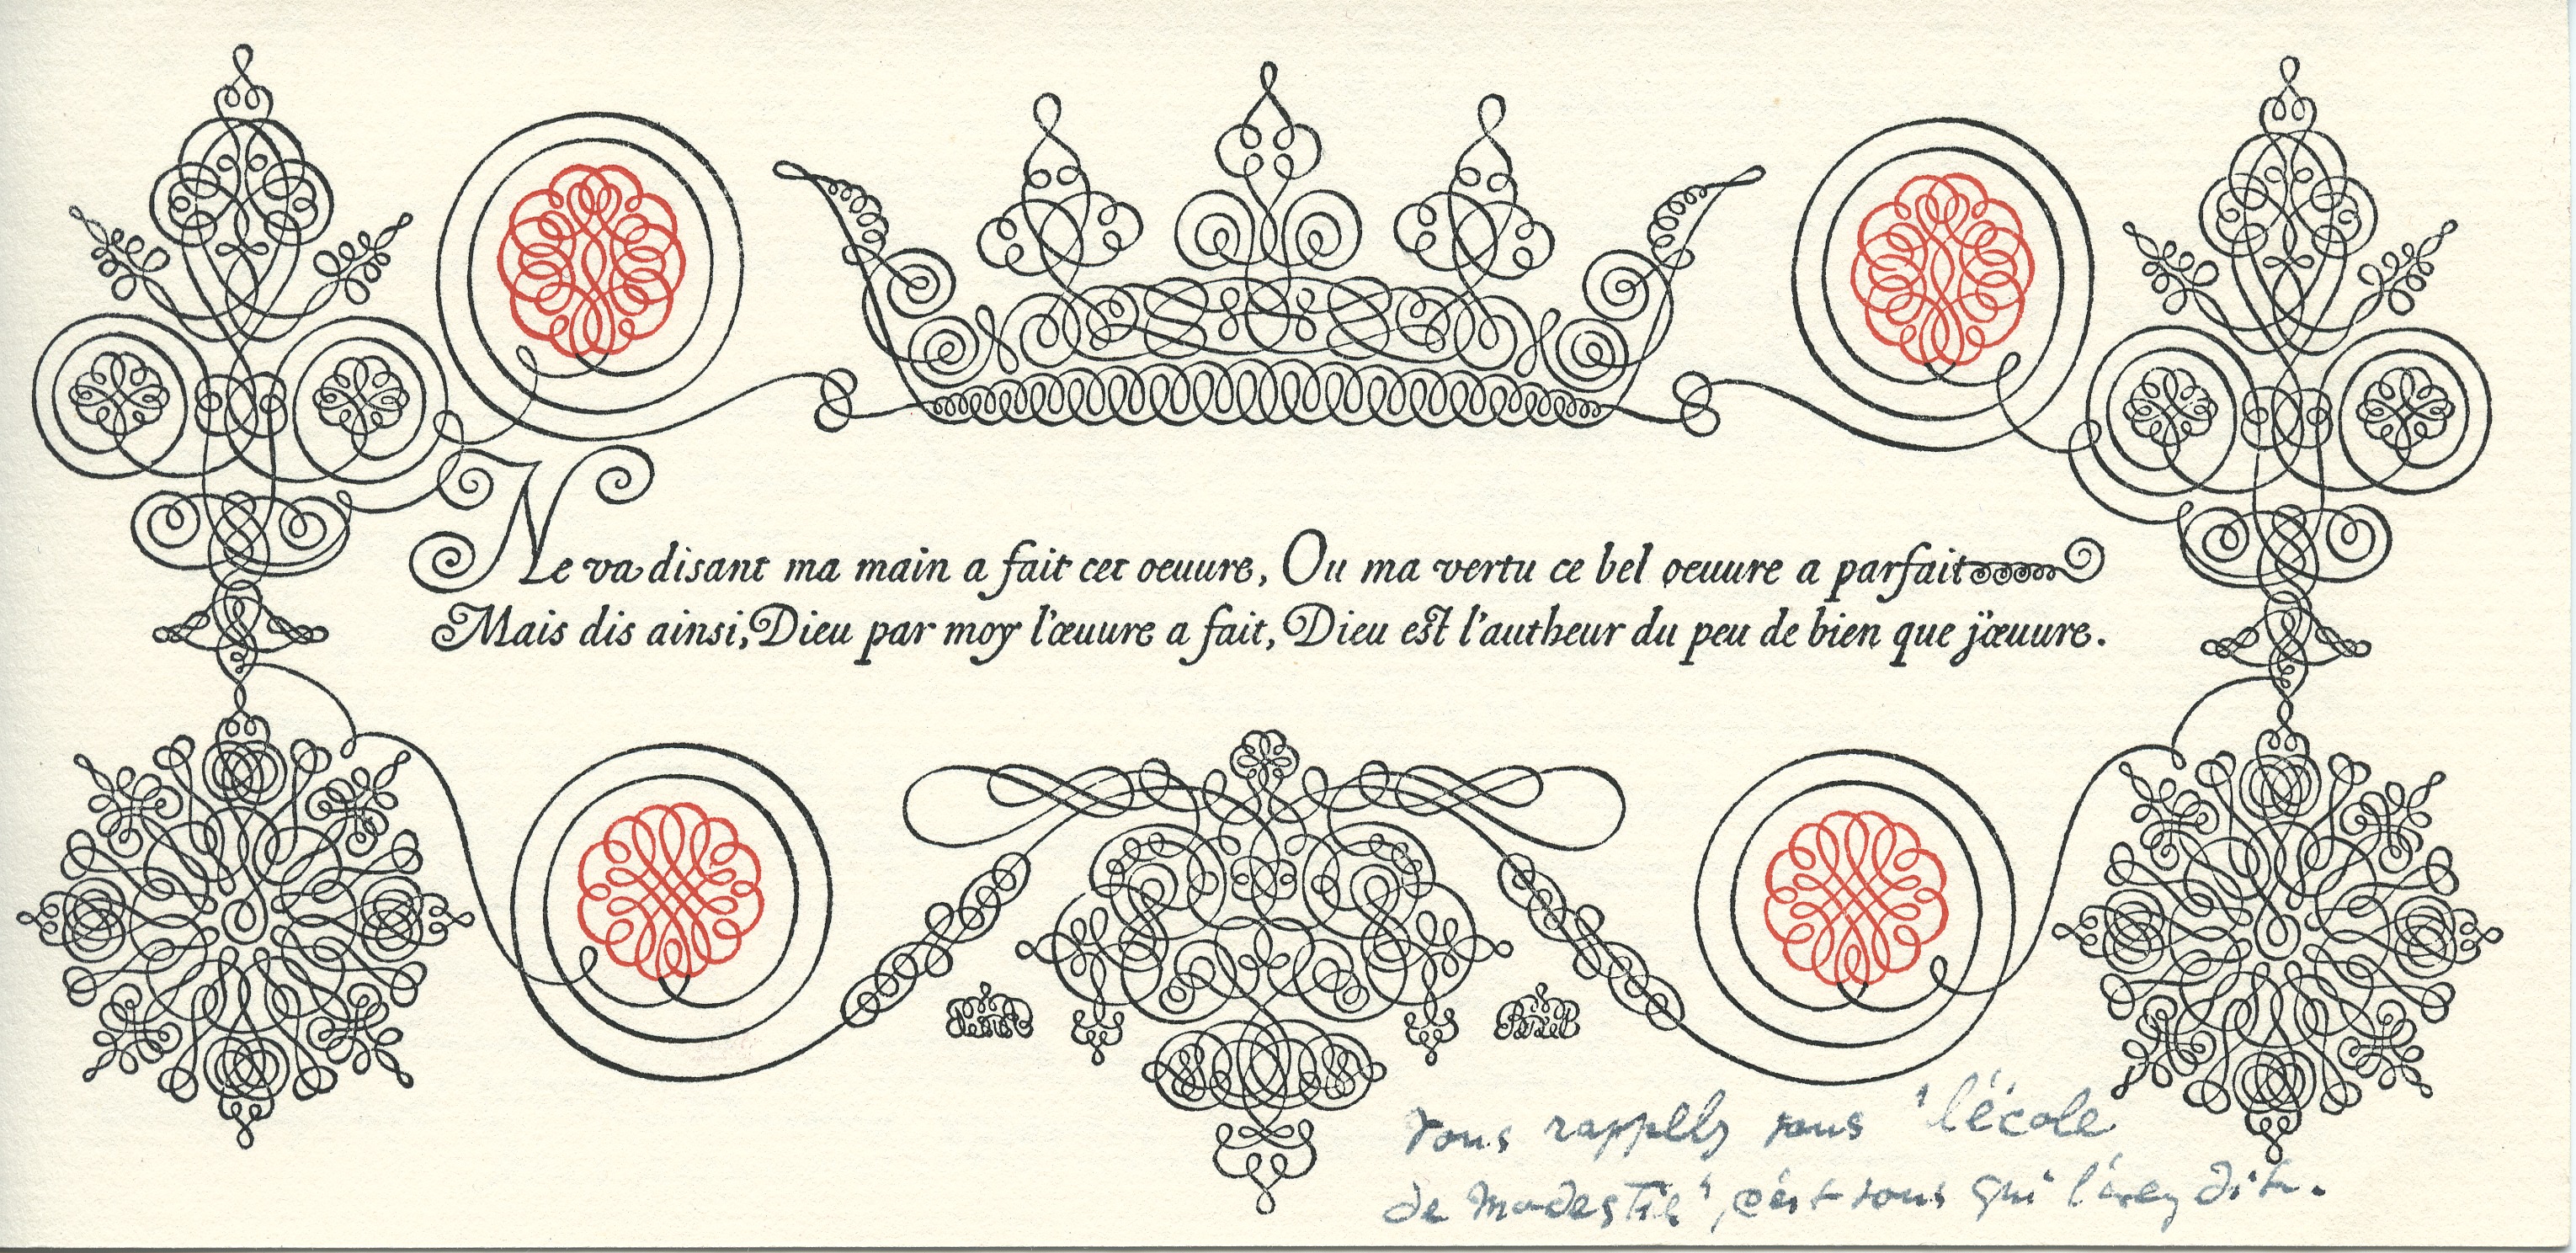 Ne va disant ma main a fait cet oeuure, Ou ma vertu ce bel oeuure a parfait
Mais dis ainsi, Dieu par moy l'œuure a fait, Dieu est l'autheur du peu de bien que j'œuure.
Vous rappelez vous "l'école
de modestie", c'est vous qui l'avez dit.